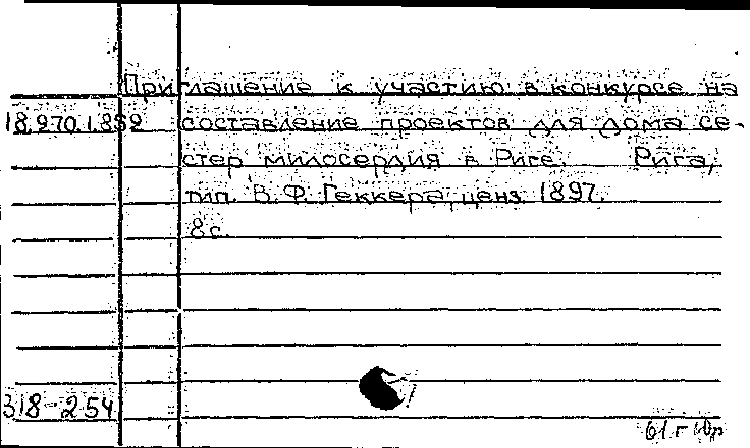 Приглашение к участию в конкурсе на
18.970.1.852 составление проектов для дома се-
стер милосердия в Риге. Рига,
тип. В.Ф. Геккера, ценз. 1897.
8 с.
318-254
61 г